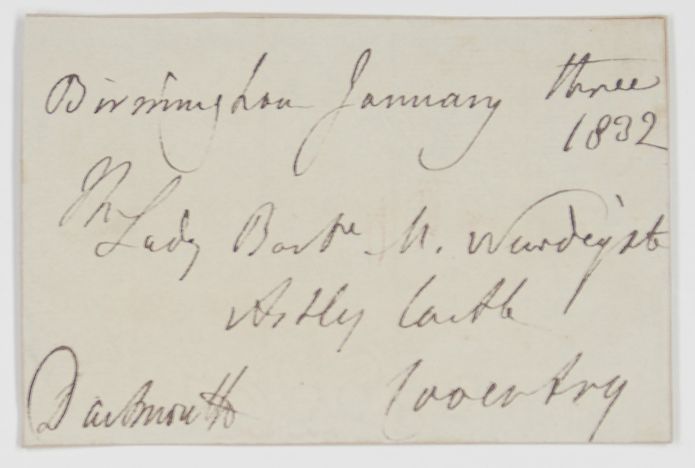 Birmingham January three
1832
The
Lady Barb.ra N. Newdigate
Astley Castle
Coventry
Dartmouth